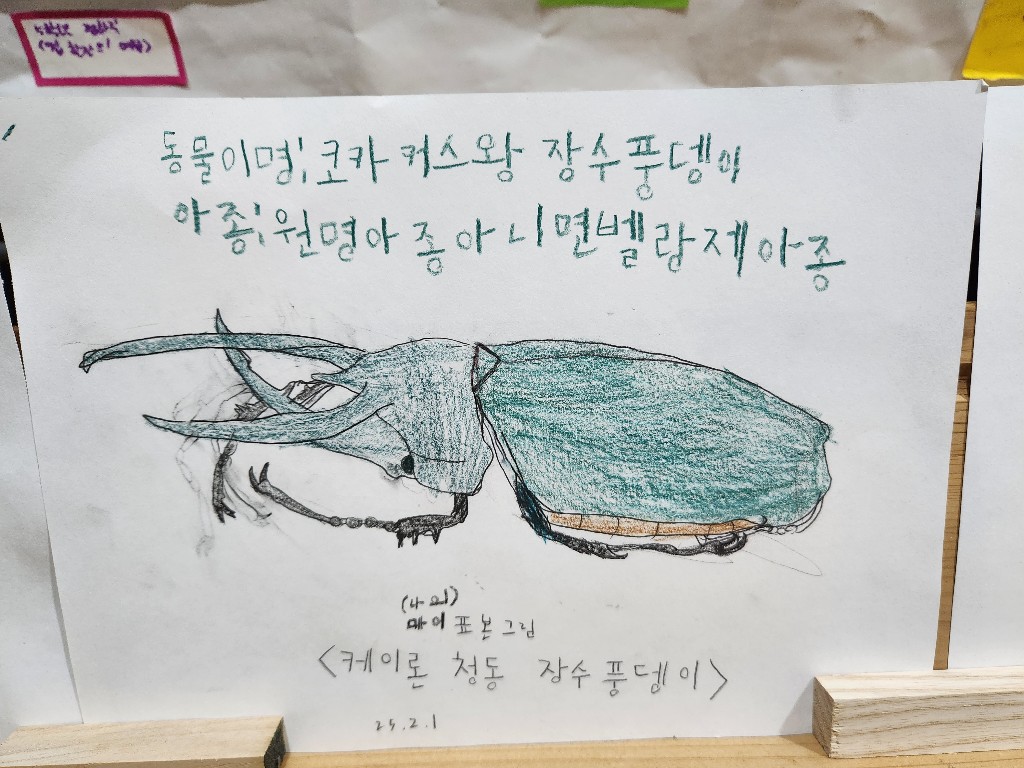 동물이명;코카커스왕 장수풍뎅이
아종;원명아종아니면벨랑제아종
(나의)
마이 표본그림
<케이론 청동 장수풍뎅이>
25.2.1